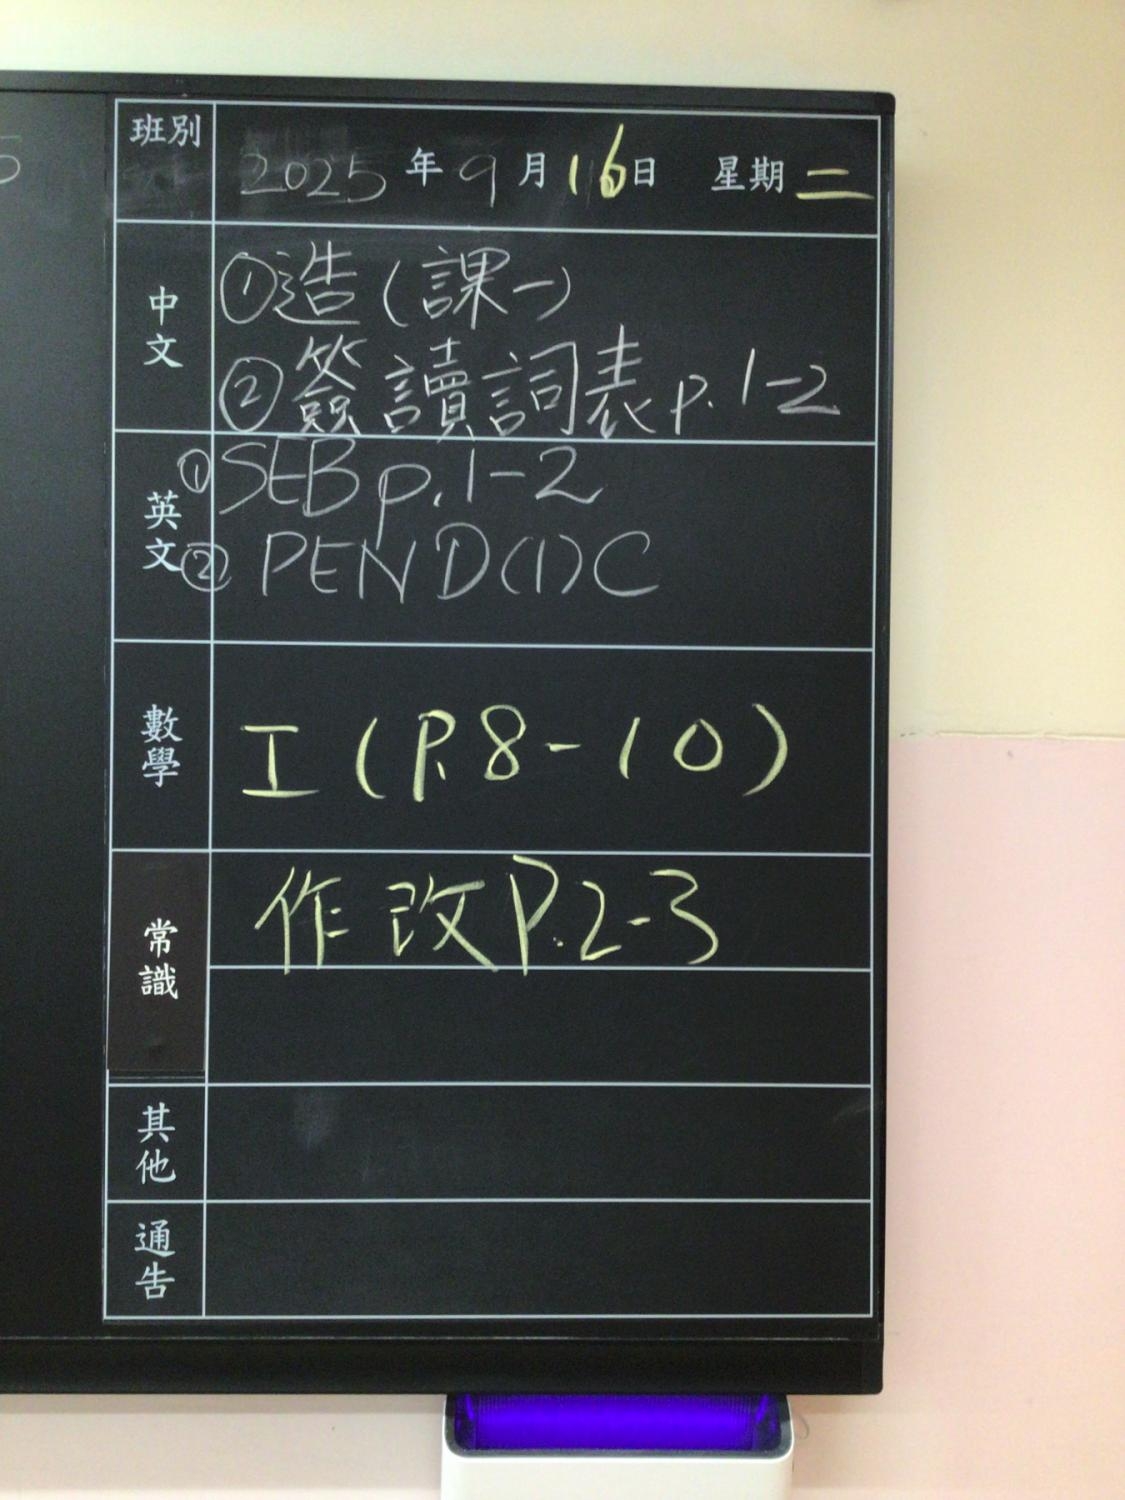 班別
2025年9月16日 星期二
中文
①造(課一)
②簽讀詞表p.1-2
英文
①SEB p.1-2
②PEN D(1)C
數學
工(P.8-10)
常識
作改P.2-3
其他
通告